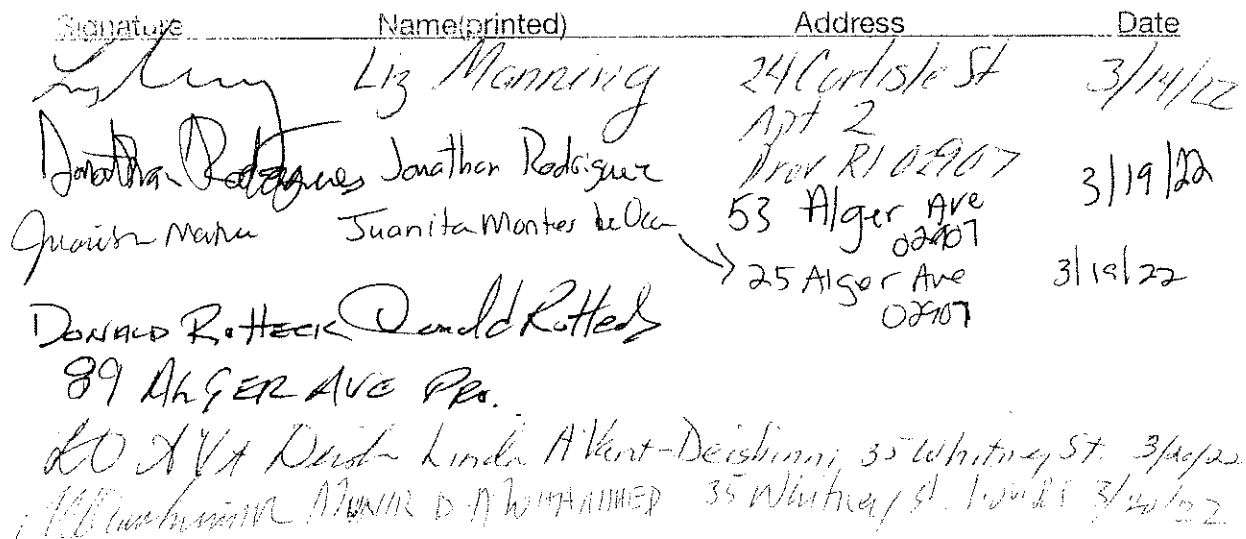 Signature Name(printed) Address Date
Liz Manning 24 Carlisle St 3/14/22
Apt 2
Prov RI 02907
Jonathan Rodriguez Jonathan Rodriguez 3/19/22
53 Alger Ave
02907
Juanita Montes de Oca
25 Alger Ave 3/19/22
02907
DONALD ROTTECK Donald Rotteck
89 ALGER AVE PRO.
Linda A'Vant-Deishinni 35 Whitney St. 3/20/22
MUNIR D A MUHAMMED 35 Whitney St. 3/20/22